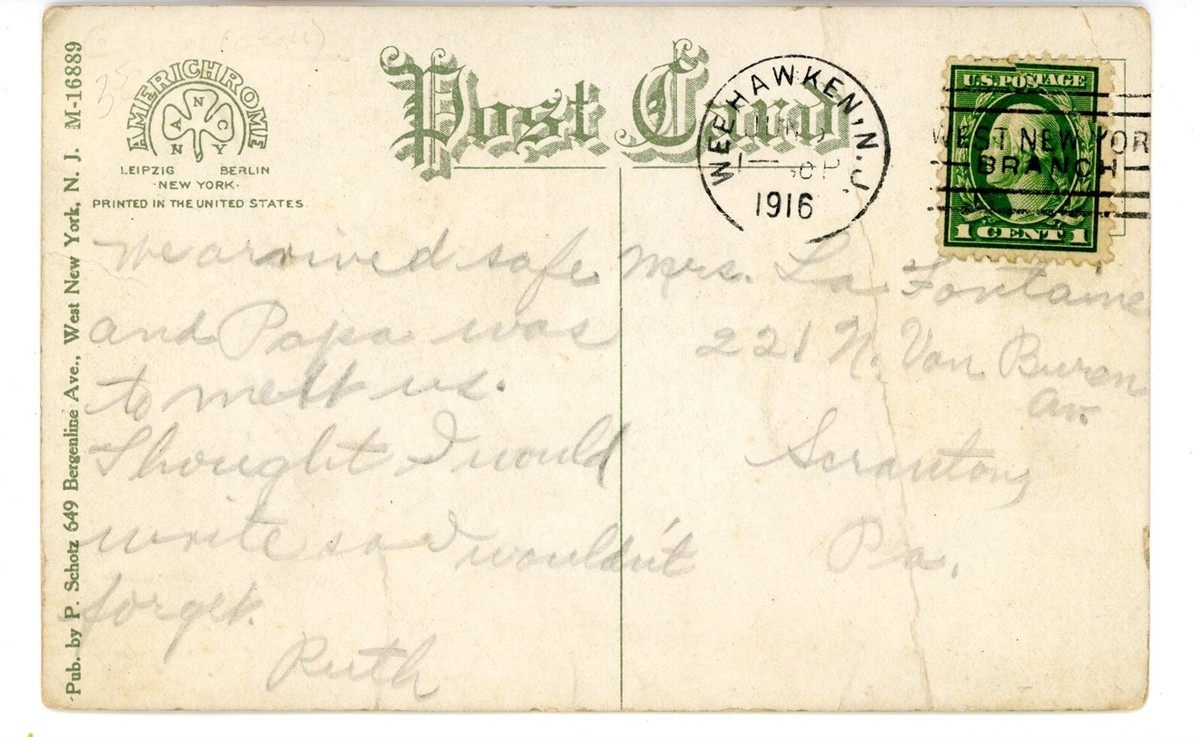 Post Card
AMERICHROME
ANNCY
LEIPZIG BERLIN
·NEW YORK·
PRINTED IN THE UNITED STATES.
Pub. by P. Schotz 649 Bergenline Ave., West New York, N. J. M-16889
WEEHAWKEN, N.J.
JUN
1916
WEST NEW YOR
BRANCH
U.S. POSTAGE
1 CENT 1
We arrived safe
and Papa was
to meet us.
Thought I would
write so I wouldn't
forget.
Ruth
Mrs. La Fontaine
221 N. Van Buren
Av.
Scranton,
Pa.